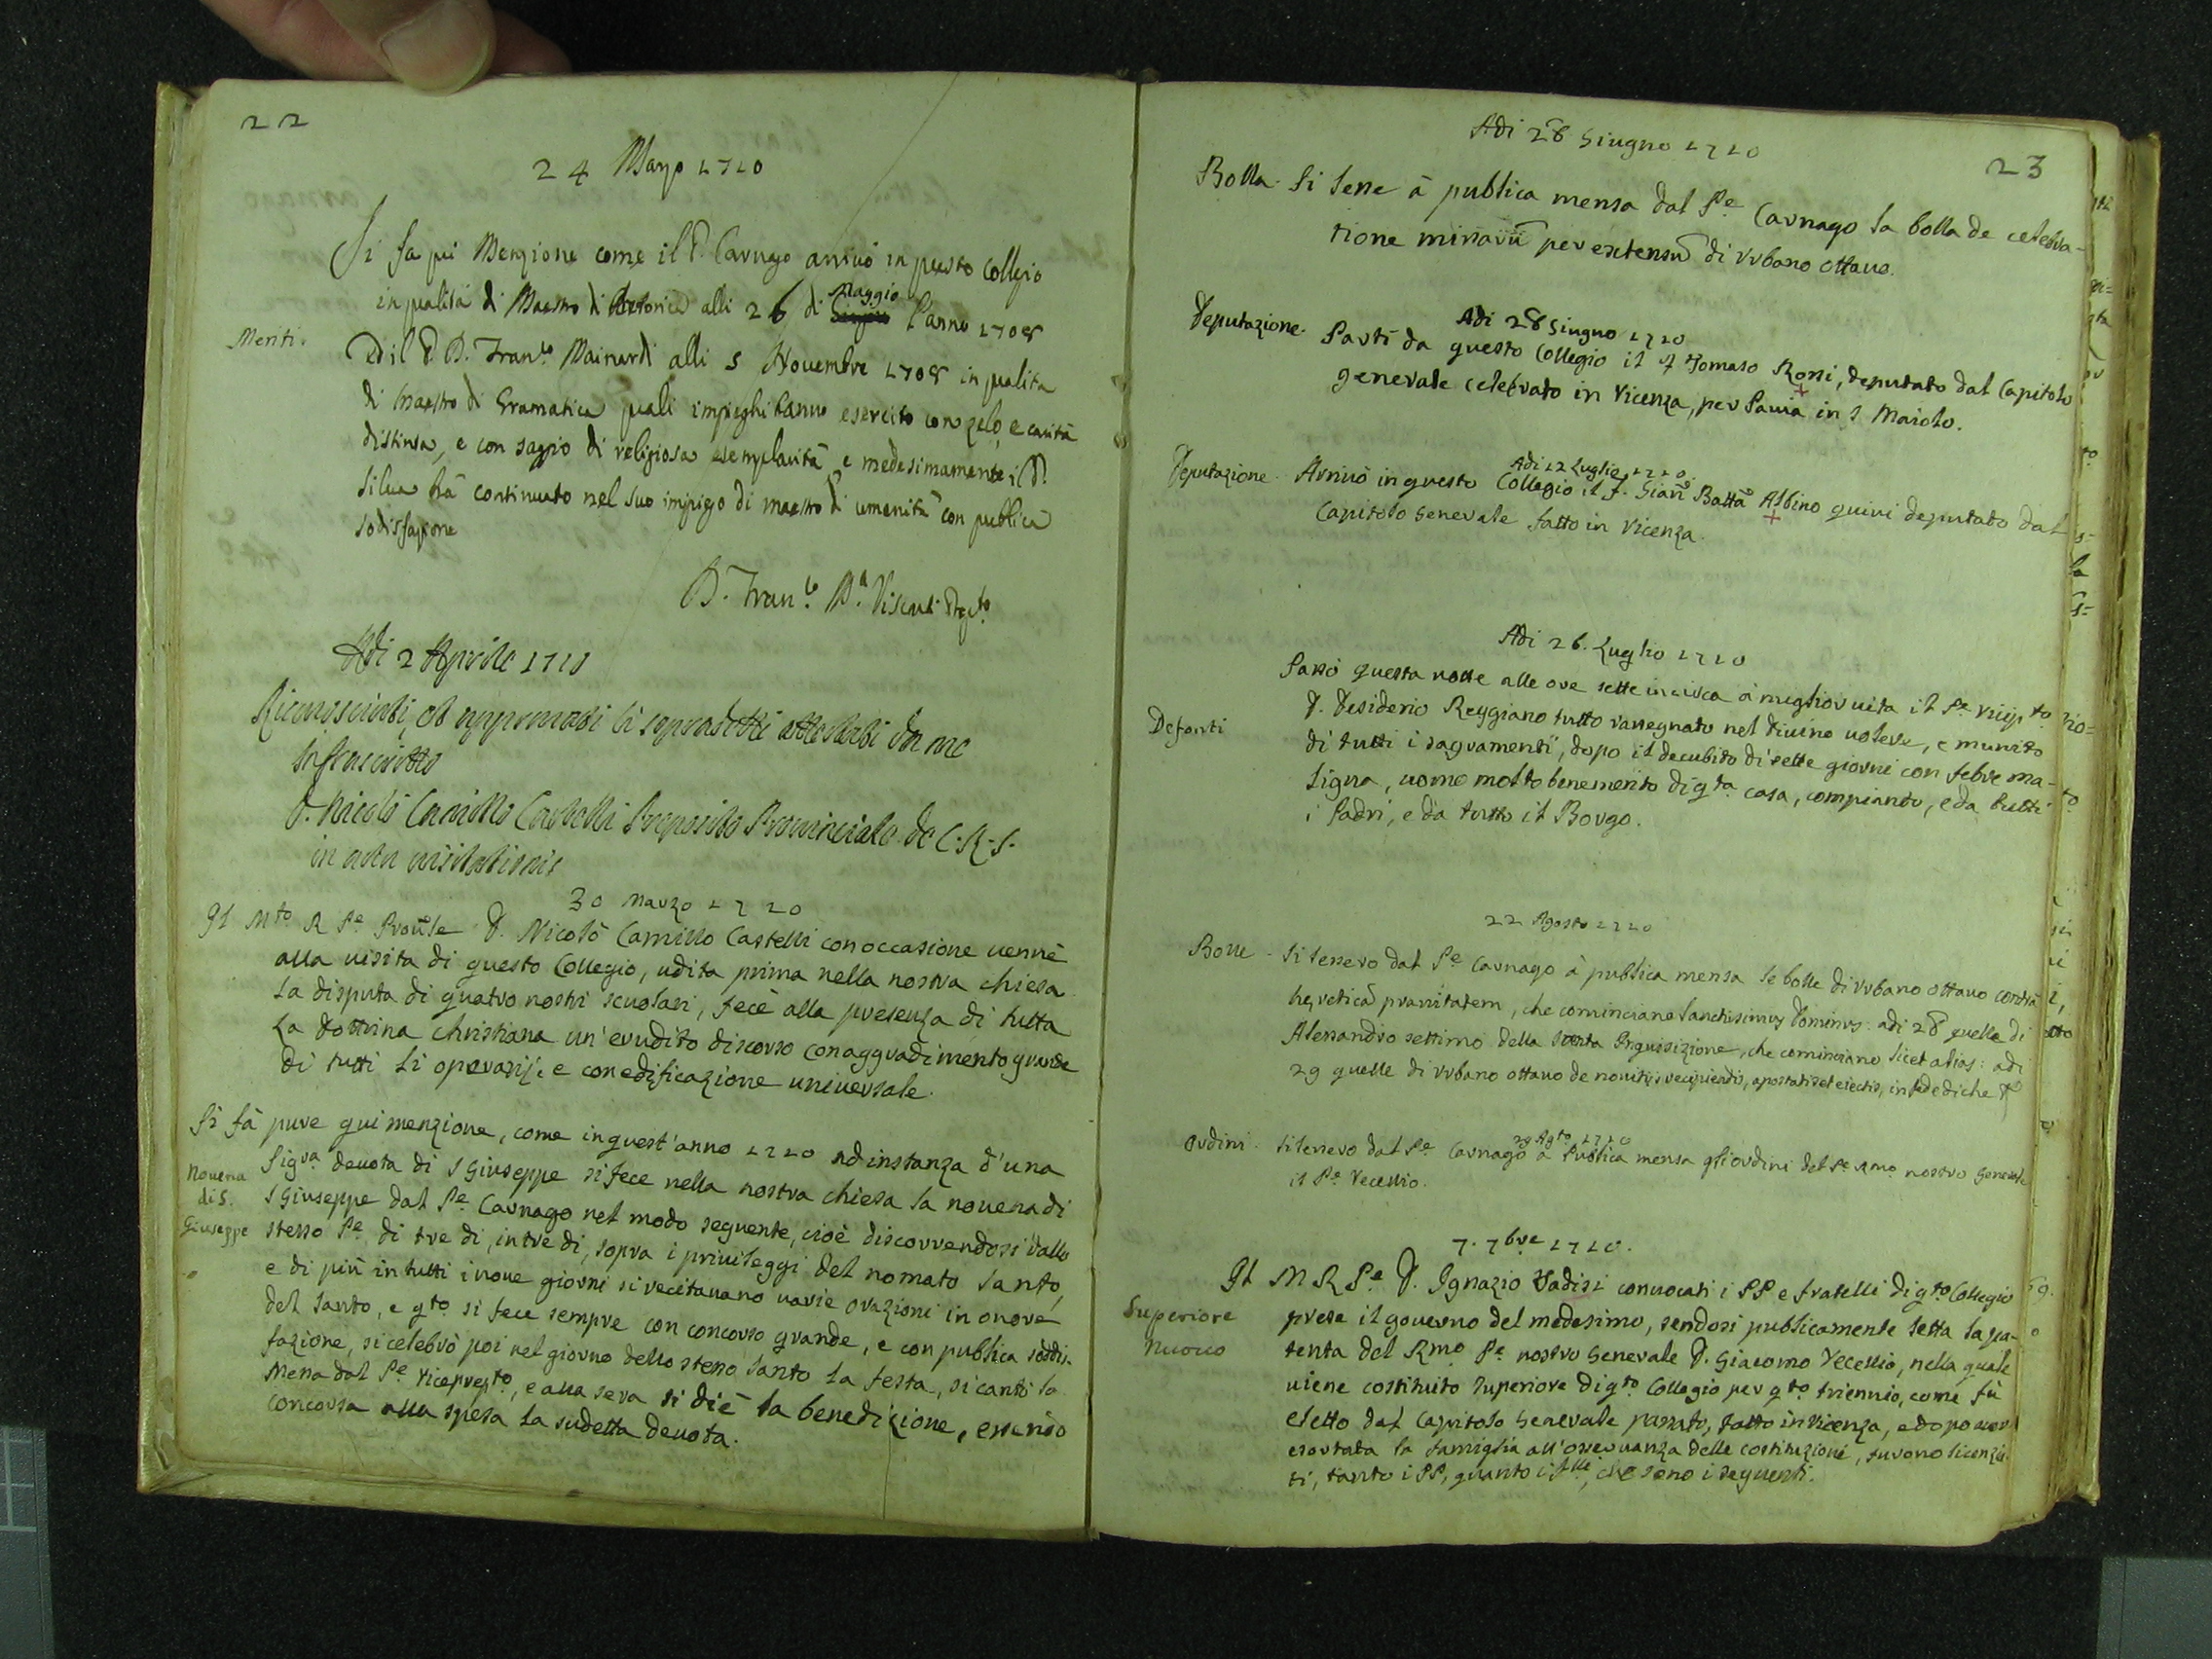 22
24 Marzo 1710
Si fa qui Menzione come il P. Carnago arrivò in questo Collegio
in qualità di Maestro di Retorica alli 26 di Maggio l'anno 1708
Meriti.
Ed il P. D. Fran.co Mainardi alli 5 Novembre 1708 in qualità
di Maestro di Gramatica quali impieghi hanno esercito con zelo, e carità
distinsa, e con saggio di religiosa esemplarità e medesimamente il P.
Silua hà continuato nel suo impiego di maestro di umanità con publica
sodisfazione
D. Fran.co M.a Visconti
Adi 2 Aprile 1710
Riconosciuti, et approuati li sopradetti attestati da me
infrascritto
D. Nicolò Camillo Castelli Preposito Prouinciale de C. R. S.
in actu visitationis
30 Marzo 1710
Il M.to R P.e Prou̅le D. Nicolò Camillo Castelli con occasione uenne
alla uisita di questo Collegio, udita prima nella nostra chiesa
la disputa di quatro nostri scuolari, fece alla presenza di tutta
la dottrina christiana un'erudito discorso con aggradimento grande
di tutti li operarij, e con edificazione uniuersale.
Si fà pure qui menzione, come in quest'anno 1710 ad instanza d'una
Sig.ra deuota di S Giuseppe si fece nella nostra chiesa la nouena di
Nouena
di S.
Giuseppe
S Giuseppe dal P.e Carnago nel modo seguente, cioè discorrendosi dallo
stesso P.e di tre di, in tre di, sopra i priuileggi del nomato Santo,
e di più in tutti i noue giorni si recitauano uarie orazioni in onore
del Santo, e q.to si fece sempre con concorso grande, e con publica soddis-
fazione, si celebrò poi nel giorno dello stesso Santo la festa, si cantò la
Messa dal P.e Viceprep.to, e alla sera si diè la benedizione, essendo
concorsa alla spesa la sudetta deuota.
23
Adi 28 Giugno 1710
Bolla. Si lesse à publica mensa dal P.e Carnago la bolla de celebra-
tione missarū per extensū di Vrbano ottauo.
Adi 28 Giugno 1710
Deputazione. Partì da questo Collegio il f Tomaso Rossi, deputato dal Capitolo
generale celebrato in Vicenza, per Pauia in S Maiolo.
Adi 12 Luglio 1710
Deputazione. Arriuò in questo Collegio il f. Gian Batta Albino quiui deputato dal
Capitolo Generale fatto in Vicenza.
Adi 26. Luglio 1710
Passò questa notte alle ore sette in circa à miglior uita il P.e Vicep.to
Defonti
D. Desiderio Reggiano tutto rassegnato nel diuino uolere, e munito
di tutti i sagramenti, dopo il decubito di sette giorni con febre ma-
ligna, uomo molto benemerito di q.ta casa, compianto, e da tutti
i Padri, e da tutto il Borgo.
22 Agosto 1710
Bolle. Si lessero dal P.e Carnago à publica mensa le bolle di Vrbano ottauo contra
hereticā prauitatem, che cominciano Sanctissimus Dominus: adi 28 quelle di
Alessandro settimo della Santa Inquisizione, che cominciano licet alias: adi
29 quelle di Vrbano ottauo de nouitijs recipiendis, apostatis et eiectis, in fede di che
29 Ag.to 1710
Ordini. Si lessero dal P.e Carnago à Publica mensa gli ordini del P.e R.mo nostro Generale
il P.e Vecellio.
7. 7bre 1710.
Il M R P.e D. Ignazio Vadisi conuocati i PP e fratelli di q.to Collegio
Superiore
Nuouo
prese il gouerno del medesimo, sendosi publicamente letta la pa-
tenta del Rmo P.e nostro Generale D. Giacomo Vecellio, nella quale
uiene costituito superiore di q.to Collegio per q.to triennio, come fù
eletto dal Capitolo Generale passato, fatto in Vicenza, e dopo auer
esortata la famiglia all'osseruanza delle costituzioni, furono licenzia-
ti, tanto i PP, quanto i f.lli, che sono i seguenti.